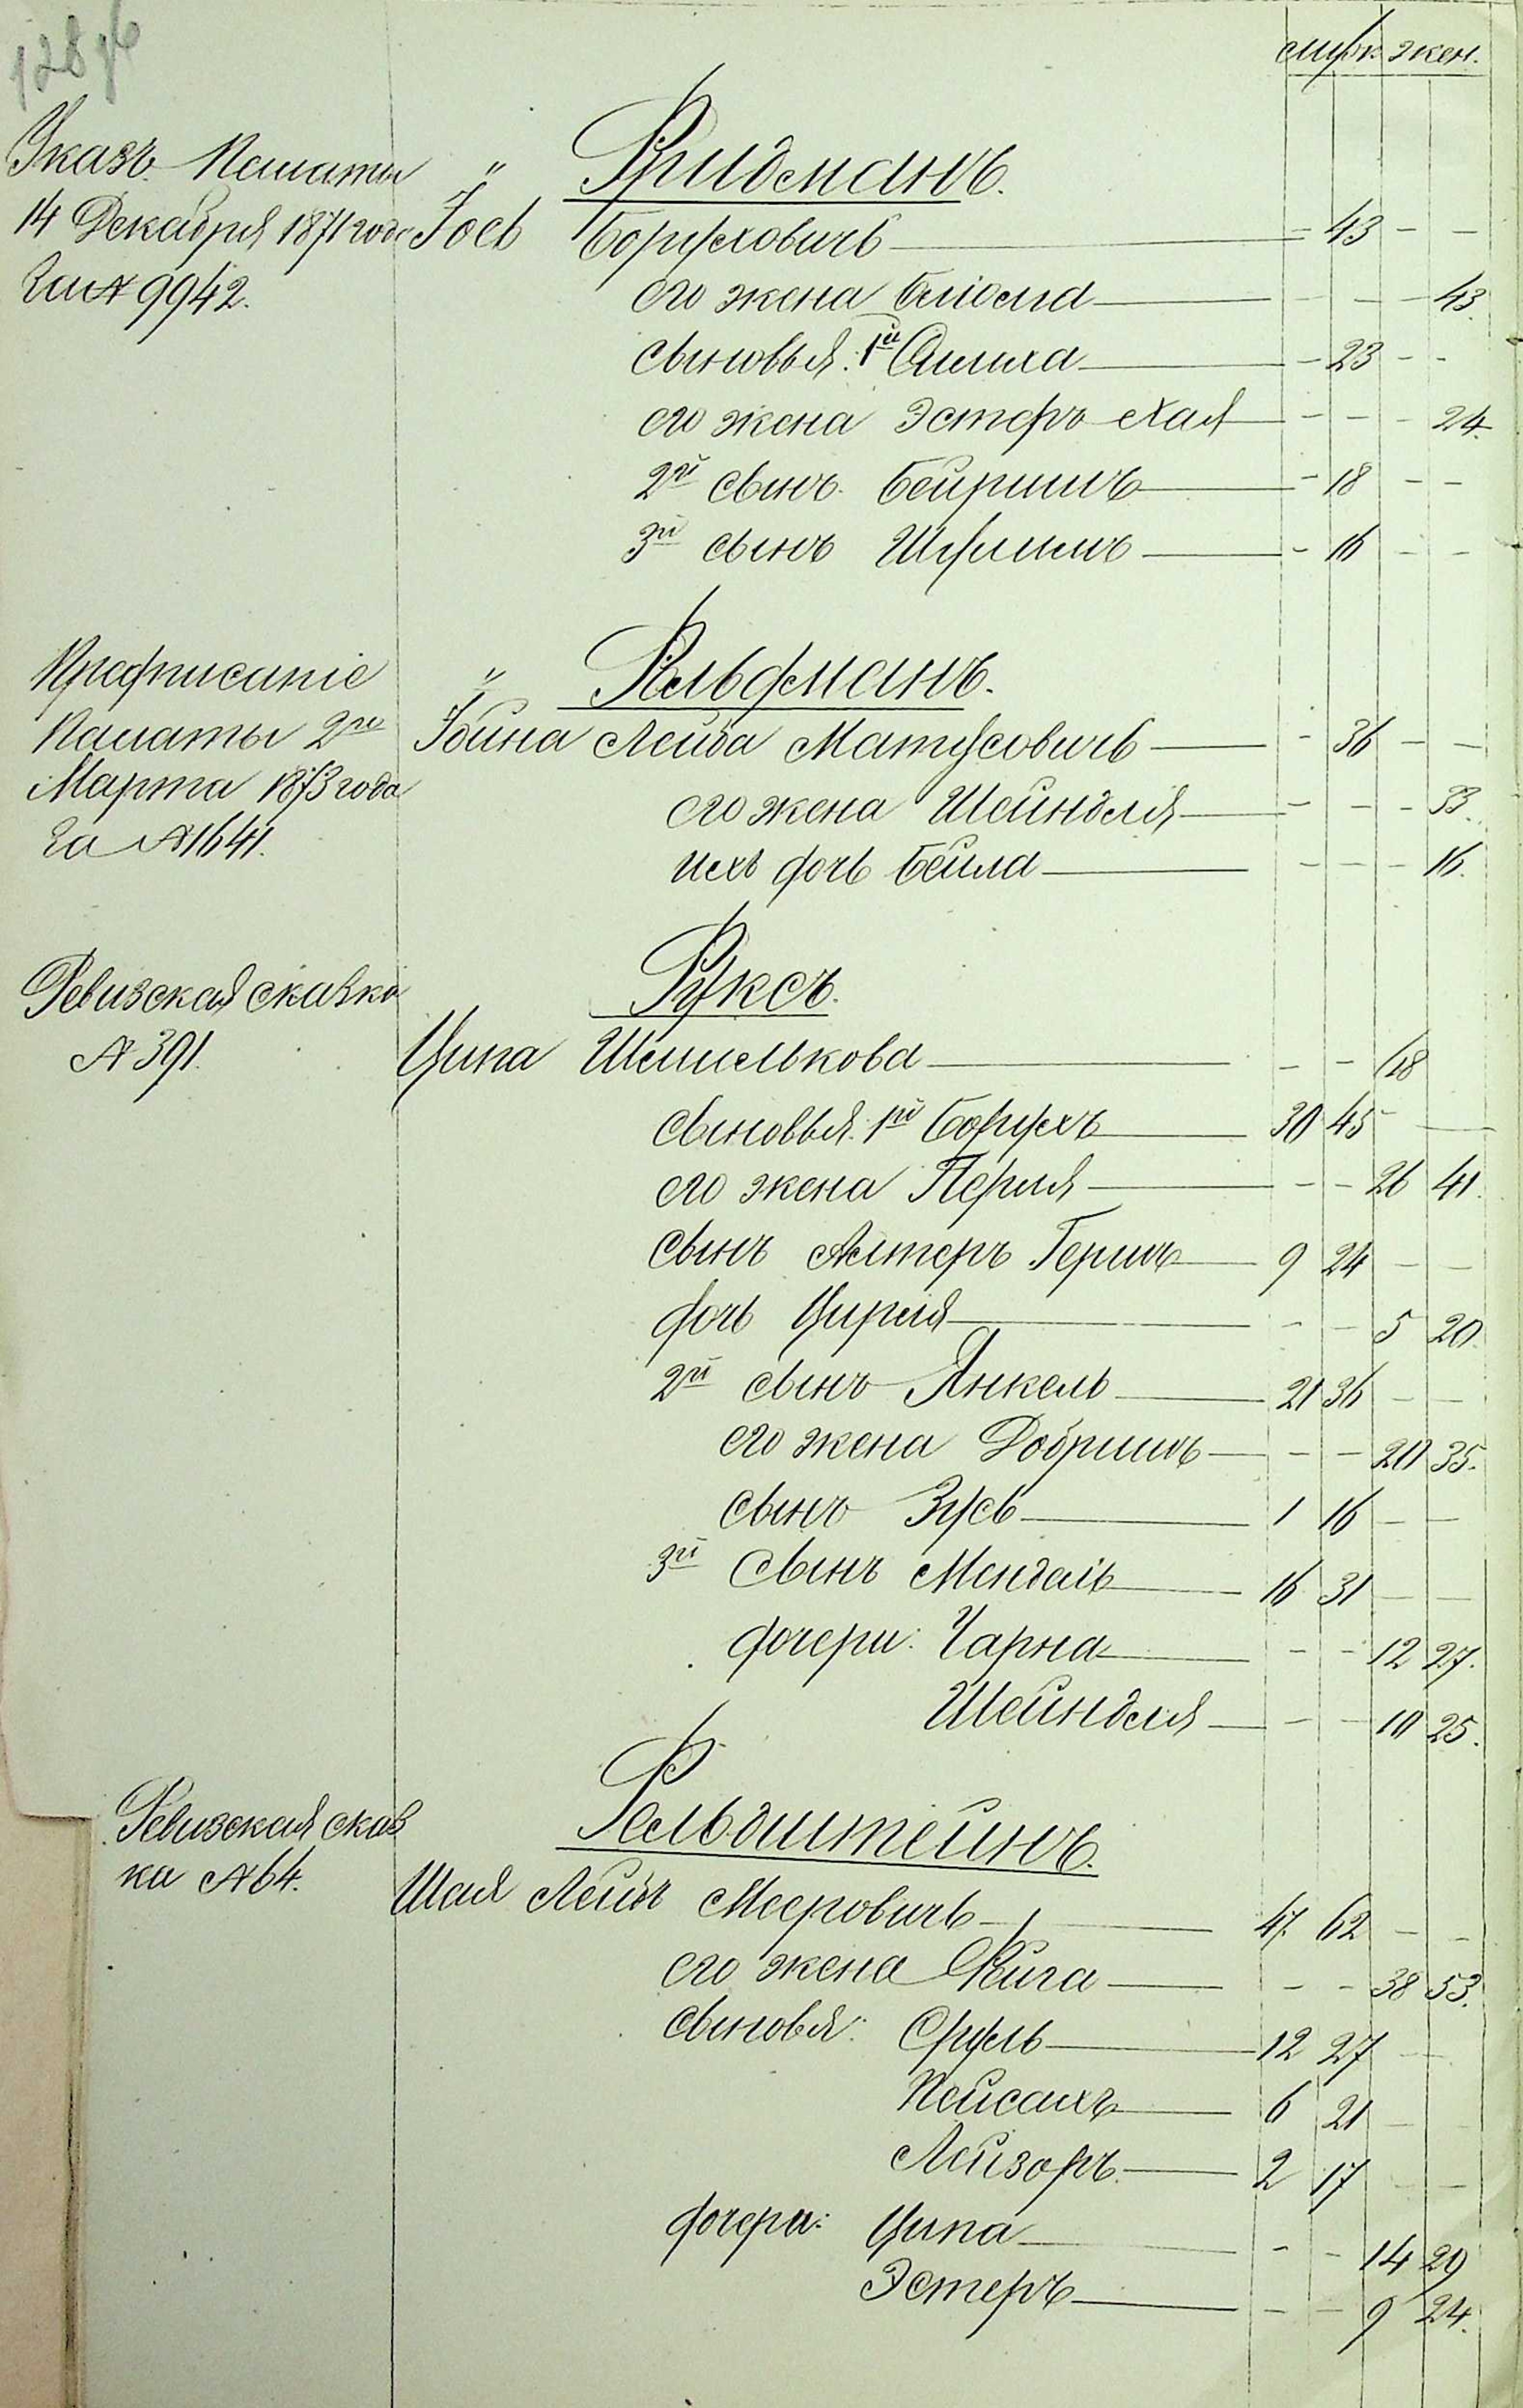 муж. жен.
Указъ Палаты " Фридманъ.
14 Декабря 1871 года Іось Боруховичъ — 43 - -
За № 9942. его жена Блюма - - - 43.
сыновья: 1й Симха - 23 - -
его жена Эстеръ Хая - - - 24.
2й сынъ Бейришъ - 18 - -
3й сынъ Шулимъ - 16 - -
Предписаніе " Фельдманъ.
Палаты 2го Іойна Лейба Матусовичъ - 36 - -
Марта 1873 года его жена Шейндля - - - 33.
За № 1641. ихъ дочь Бейла - - - 16.
Ревизская сказка Фуксъ.
№ 391. Ципа Шмилькова - -
сыновья: 1й Борухъ 30 45 - -
его жена Перля - - 26 41.
сынъ Алтеръ Гершъ 9 24 - -
дочь Цирля - - 5 20.
2й сынъ Янкель 21 36 - -
его жена Добришъ - - 20 35.
сынъ Зусь 1 16 - -
3й сынъ Мендаль 16 31 - -
дочери: Чарна - - 12 27.
Шейндля - - 10 25.
Ревизская сказ Фельдштейнъ.
ка № 64. Шая Лейбъ Мееровичъ 47. 62 - -
его жена Фейга - - 38 53.
сыновья: Сруль 12 27 - -
Пейсахъ 6 21 - -
Лейзоръ 2 17 - -
дочери: Ципа - - 14 29
Эстеръ - - 9 24.